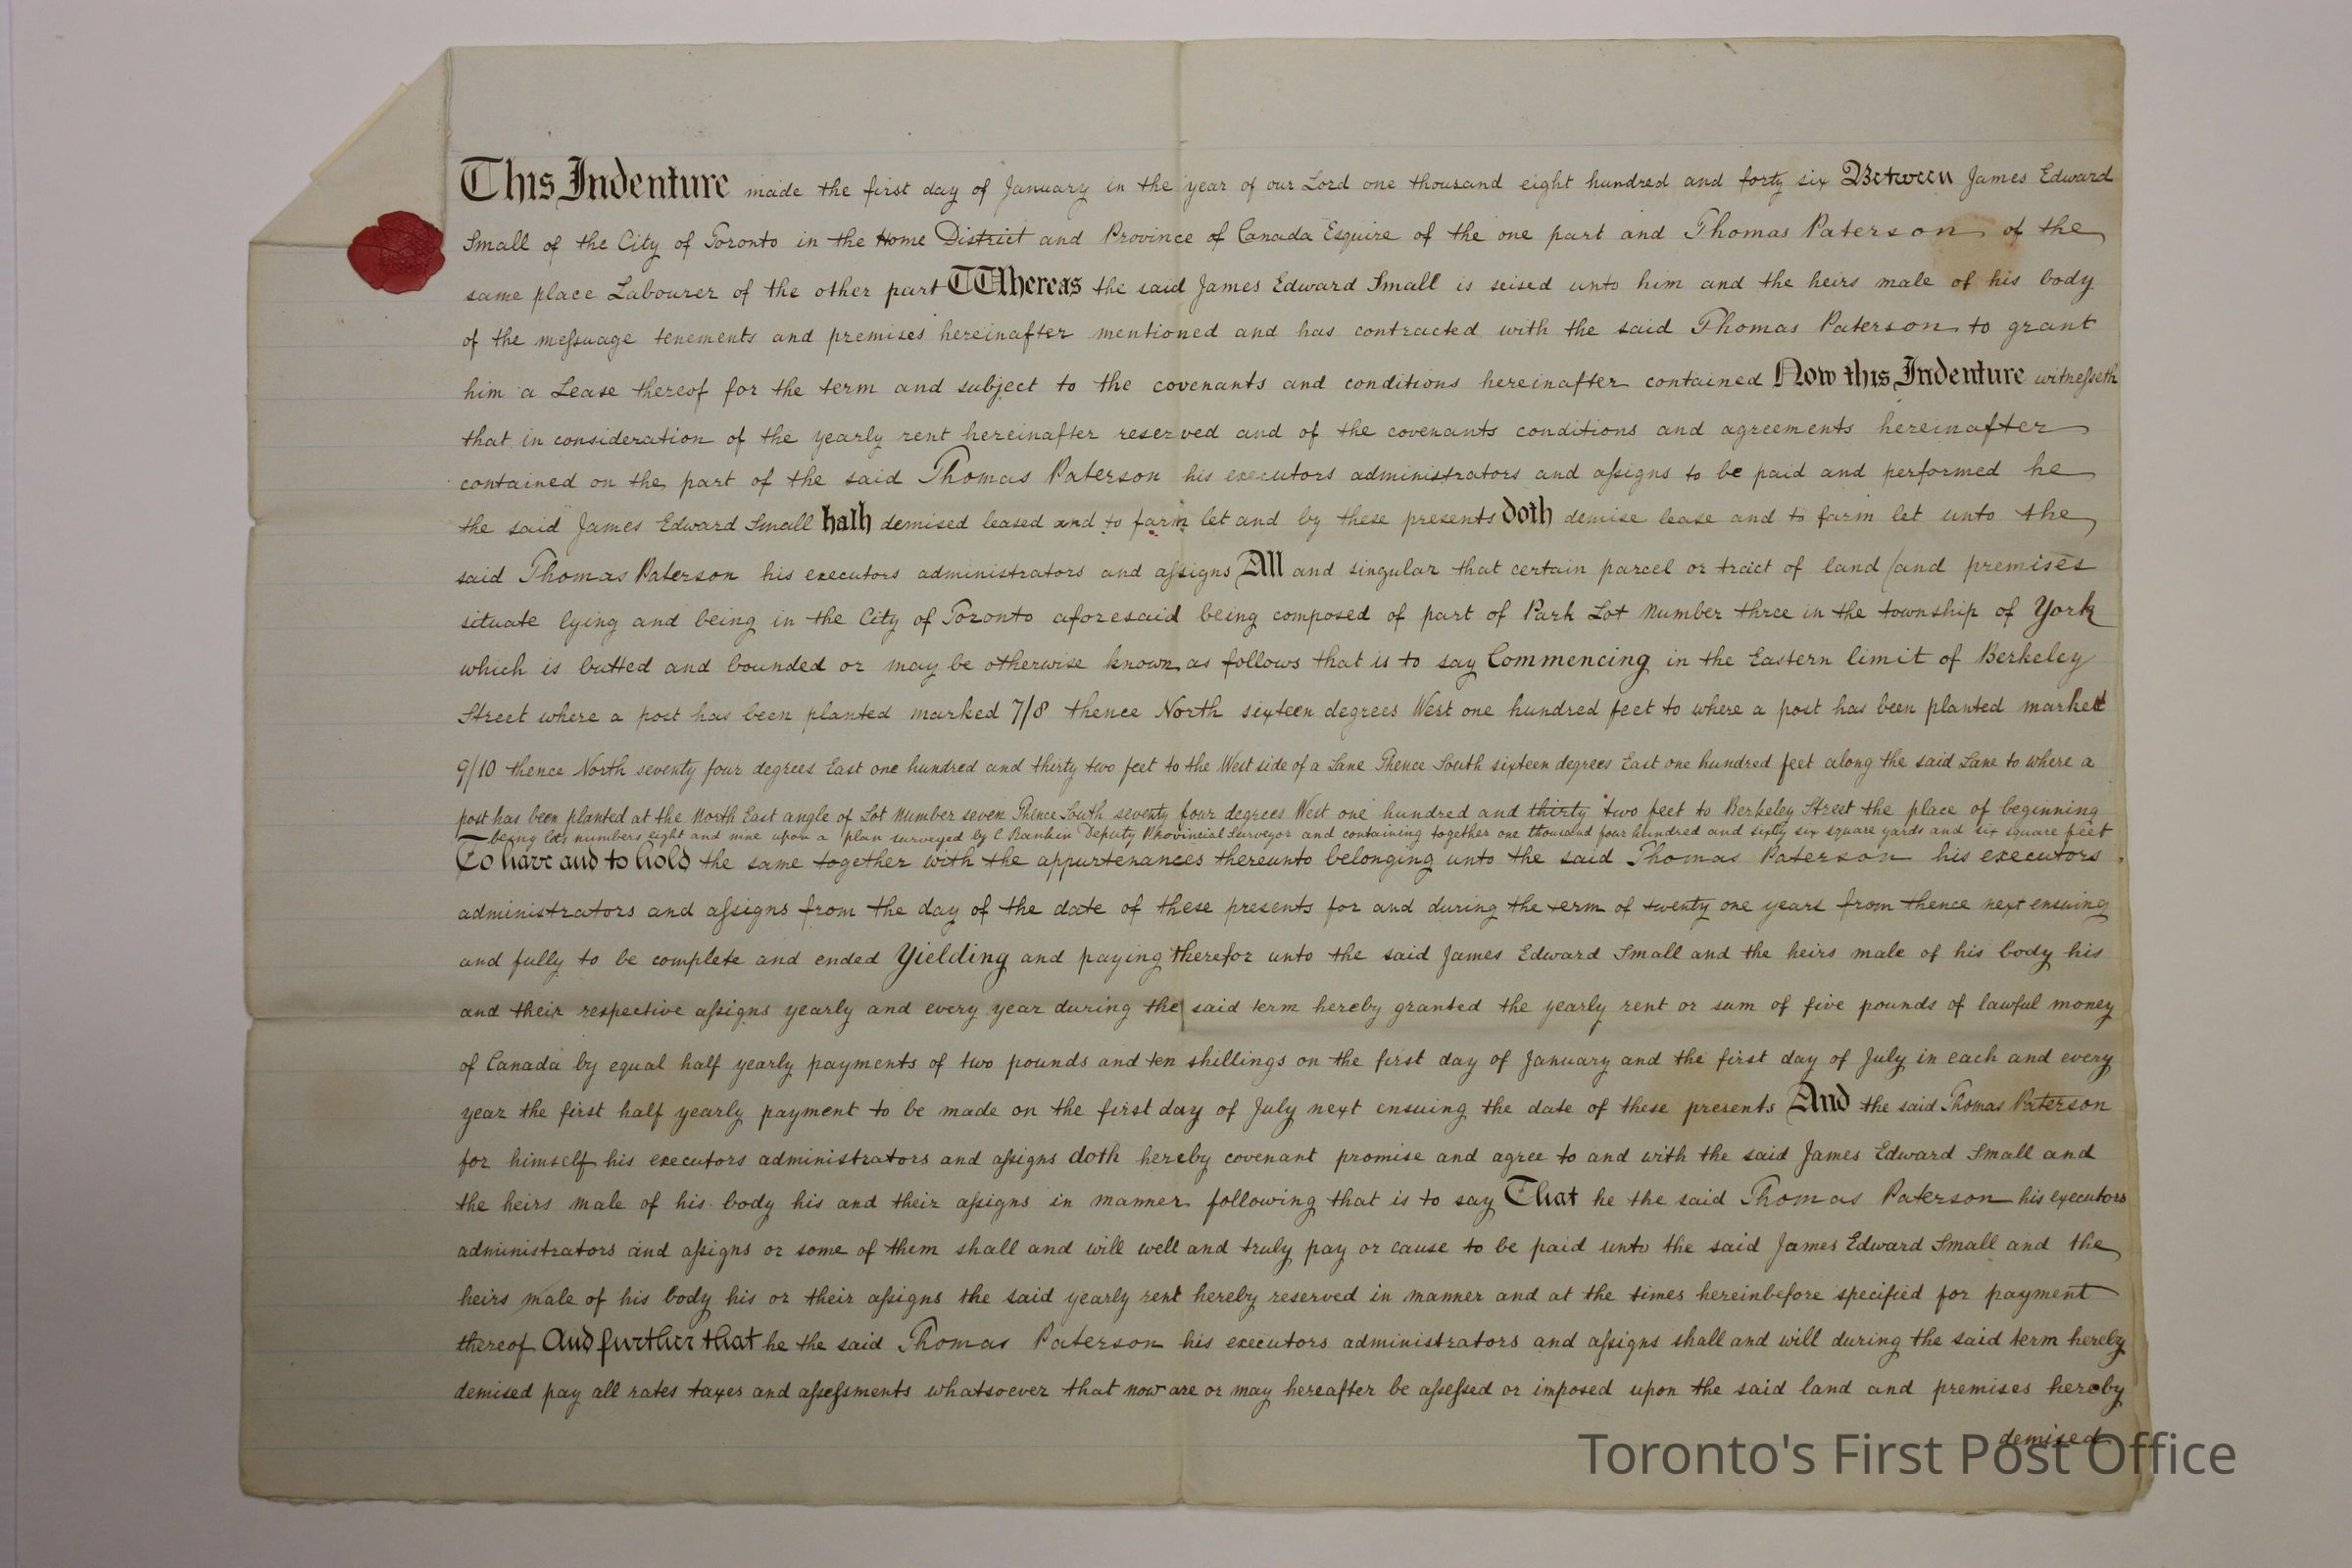 This Indenture made the first day of January in the year of our Lord one thousand eight hundred and forty six Between James Edward
Small of the City of Toronto in the Home District and Province of Canada Esquire of the one part and Thomas Paterson of the
same place Labourer of the other part Whereas the said James Edward Small is seised unto him and the heirs male of his body
of the messuage tenements and premises hereinafter mentioned and has contracted with the said Thomas Paterson to grant
him a Lease thereof for the term and subject to the covenants and conditions hereinafter contained Now this Indenture witnesseth
that in consideration of the yearly rent hereinafter reserved and of the covenants conditions and agreements hereinafter
contained on the part of the said Thomas Paterson his executors administrators and assigns to be paid and performed he
the said James Edward Small hath demised leased and to farm let and by these presents doth demise lease and to farm let unto the
said Thomas Paterson his executors administrators and assigns All and singular that certain parcel or tract of land and premises
situate lying and being in the City of Toronto aforesaid being composed of part of Park Lot Number three in the township of York
which is butted and bounded or may be otherwise known as follows that is to say Commencing in the Eastern limit of Berkeley
Street where a post has been planted marked 7/8 thence North sixteen degrees West one hundred feet to where a post has been planted marked
9/10 thence North seventy four degrees East one hundred and thirty two feet to the West side of a Lane Thence South sixteen degrees East one hundred feet along the said Lane to where a
post has been planted at the North East angle of Lot Number seven Thence South seventy four degrees West one hundred and thirty two feet to Berkeley Street the place of beginning
being lots numbers eight and nine upon a plan surveyed by C Rankin Deputy Provincial Surveyor and containing together one thousand four hundred and sixty six square yards and six square feet
To have and to hold the same together with the appurtenances thereunto belonging unto the said Thomas Paterson his executors
administrators and assigns from the day of the date of these presents for and during the term of twenty one years from thence next ensuing
and fully to be complete and ended Yielding and paying therefor unto the said James Edward Small and the heirs male of his body his
and their respective assigns yearly and every year during the said term hereby granted the yearly rent or sum of five pounds of lawful money
of Canada by equal half yearly payments of two pounds and ten shillings on the first day of January and the first day of July in each and every
year the first half yearly payment to be made on the first day of July next ensuing the date of these presents And the said Thomas Paterson
for himself his executors administrators and assigns doth hereby covenant promise and agree to and with the said James Edward Small and
the heirs male of his body his and their assigns in manner following that is to say That he the said Thomas Paterson his executors
administrators and assigns or some of them shall and will well and truly pay or cause to be paid unto the said James Edward Small and the
heirs male of his body his or their assigns the said yearly rent hereby reserved in manner and at the times hereinbefore specified for payment
thereof And further that he the said Thomas Paterson his executors administrators and assigns shall and will during the said term hereby
demised pay all rates taxes and assessments whatsoever that now are or may hereafter be assessed or imposed upon the said land and premises hereby
demised
Toronto's First Post Office